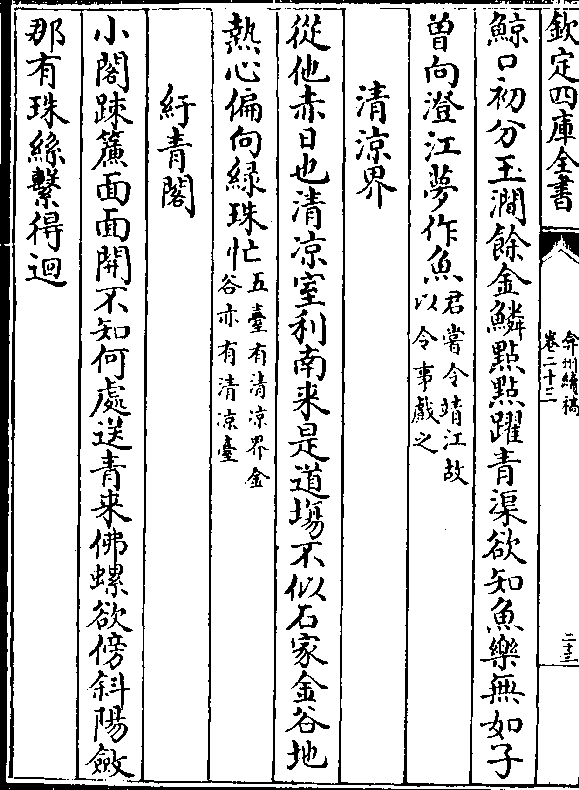 欽定四庫全書
弇州續稿
卷二十三
二十三
鯨口初分玉澗餘金鱗點點躍青渠欲知魚樂無如子
曾向澄江夢作魚君嘗令靖江故以令事戲之
清涼界
從他赤日也清凉室利南来是道場不似石家金谷地
熱心偏向緑珠忙五臺有清凉界金谷亦有清凉臺
紆青閣
小閣踈簾面面開不知何處送青来佛螺欲傍斜陽斂
那有珠絲繫得迴